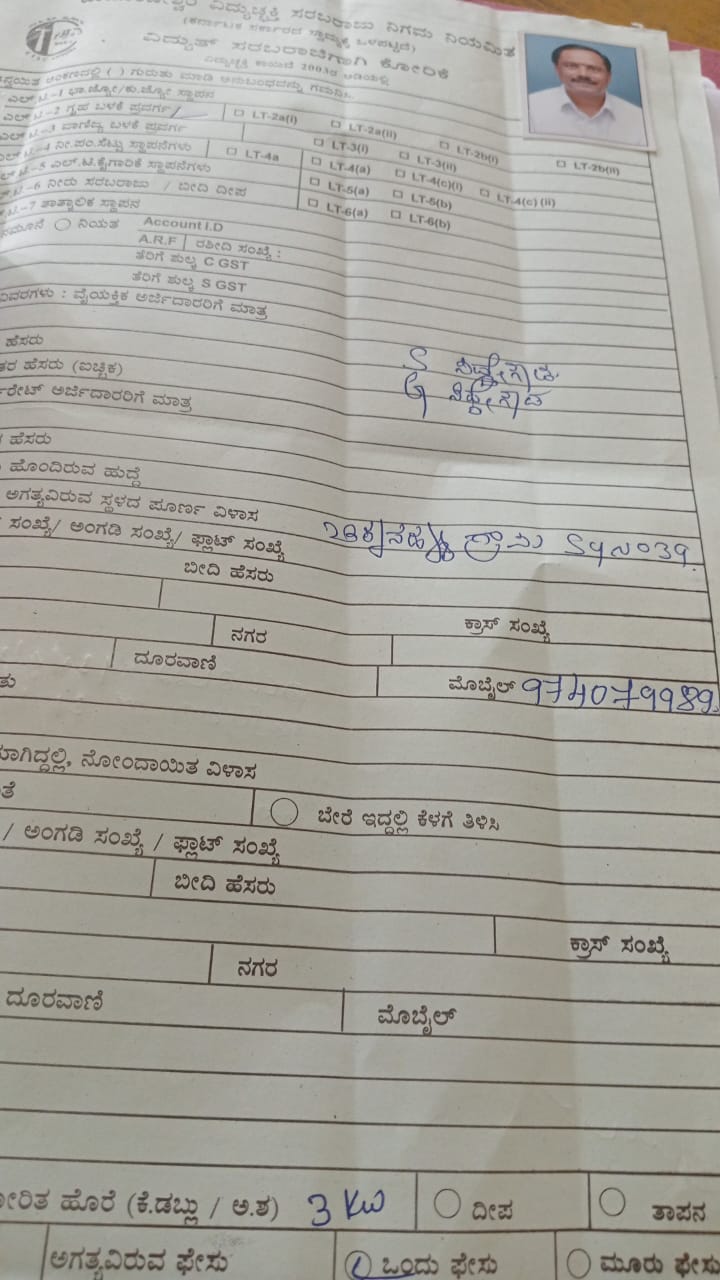 ವಿದ್ಯುಚ್ಛಕ್ತಿ ಸರಬರಾಜು ನಿಗಮ ನಿಯಮಿತ
(ಕರ್ನಾಟಕ ಸರ್ಕಾರದ ಸ್ವಾಮ್ಯಕ್ಕೆ ಒಳಪಟ್ಟಿದೆ)
ವಿದ್ಯುತ್ ಸರಬರಾಜಿಗಾಗಿ ಕೋರಿಕೆ
ವಿದ್ಯುಚ್ಛಕ್ತಿ ಕಾಯಿದೆ 2003ರ ಅಡಿಯಲ್ಲಿ
ಅಂಕಣದಲ್ಲಿ ( ) ಗುರುತು ಮಾಡಿ ಅನುಬಂಧವನ್ನು ಗಮನಿಸಿ
ಎಲ್.ಟಿ.-1 ಭಾ.ಜ್ಯೋ/ಕು.ಜ್ಯೋ ಸ್ಥಾಪನ
ಎಲ್.ಟಿ.-2 ಗೃಹ ಬಳಕೆ ಪ್ರವರ್ಗ □ LT-2a(i) □ LT-2a(ii) □ LT-2b(i) □ LT-2b(ii)
ಎಲ್.ಟಿ.-3 ವಾಣಿಜ್ಯ ಬಳಕೆ ಪ್ರವರ್ಗ □ LT-3(i) □ LT-3(ii)
ಎಲ್.ಟಿ.-4 ನೀ.ಪಂ.ಸೆಟ್ಟು ಸ್ಥಾಪನೆಗಳು □ LT-4a □ LT-4(a) □ LT-4(c)(i) □ LT-4(c) (ii)
ಎಲ್.ಟಿ-5 ಎಲ್.ಟಿ.ಕೈಗಾರಿಕೆ ಸ್ಥಾಪನೆಗಳು □ LT-5(a) □ LT-5(b)
-6 ನೀರು ಸರಬರಾಜು / ಬೀದಿ ದೀಪ □ LT-6(a) □ LT-6(b)
-7 ತಾತ್ಕಾಲಿಕ ಸ್ಥಾಪನ
ನಮೂನೆ ○ ನಿಯತ Account I.D
A.R.F ರಶೀದಿ ಸಂಖ್ಯೆ :
ತೆರಿಗೆ ಶುಲ್ಕ C GST
ತೆರಿಗೆ ಶುಲ್ಕ S GST
ವಿವರಗಳು : ವೈಯಕ್ತಿಕ ಅರ್ಜಿದಾರರಿಗೆ ಮಾತ್ರ
ಹೆಸರು
ಹೆಸರು (ಐಚ್ಚಿಕ)
ಅರ್ಜಿದಾರರಿಗೆ ಮಾತ್ರ
ಹೆಸರು
ಹೊಂದಿರುವ ಹುದ್ದೆ
ಅಗತ್ಯವಿರುವ ಸ್ಥಳದ ಪೂರ್ಣ ವಿಳಾಸ
ಸಂಖ್ಯೆ/ ಅಂಗಡಿ ಸಂಖ್ಯೆ/ ಫ್ಲಾಟ್ ಸಂಖ್ಯೆ ಗ್ರಾಮ SyNo39.
ಬೀದಿ ಹೆಸರು
ಕ್ರಾಸ್ ಸಂಖ್ಯೆ
ನಗರ
ದೂರವಾಣಿ ಮೊಬೈಲ್ 974079989
ನೋಂದಾಯಿತ ವಿಳಾಸ
○ ಬೇರೆ ಇದ್ದಲ್ಲಿ ಕೆಳಗೆ ತಿಳಿಸಿ
/ ಅಂಗಡಿ ಸಂಖ್ಯೆ / ಫ್ಲಾಟ್ ಸಂಖ್ಯೆ
ಬೀದಿ ಹೆಸರು
ಕ್ರಾಸ್ ಸಂಖ್ಯೆ
ನಗರ
ದೂರವಾಣಿ ಮೊಬೈಲ್
ಹೊರೆ (ಕೆ.ಡಬ್ಲು / ಅ.ಶ) 3 KW ○ ದೀಪ ○ ತಾಪನ
ಅಗತ್ಯವಿರುವ ಫೇಸು ○ ಒಂದು ಫೇಸು ○ ಮೂರು ಫೇಸು